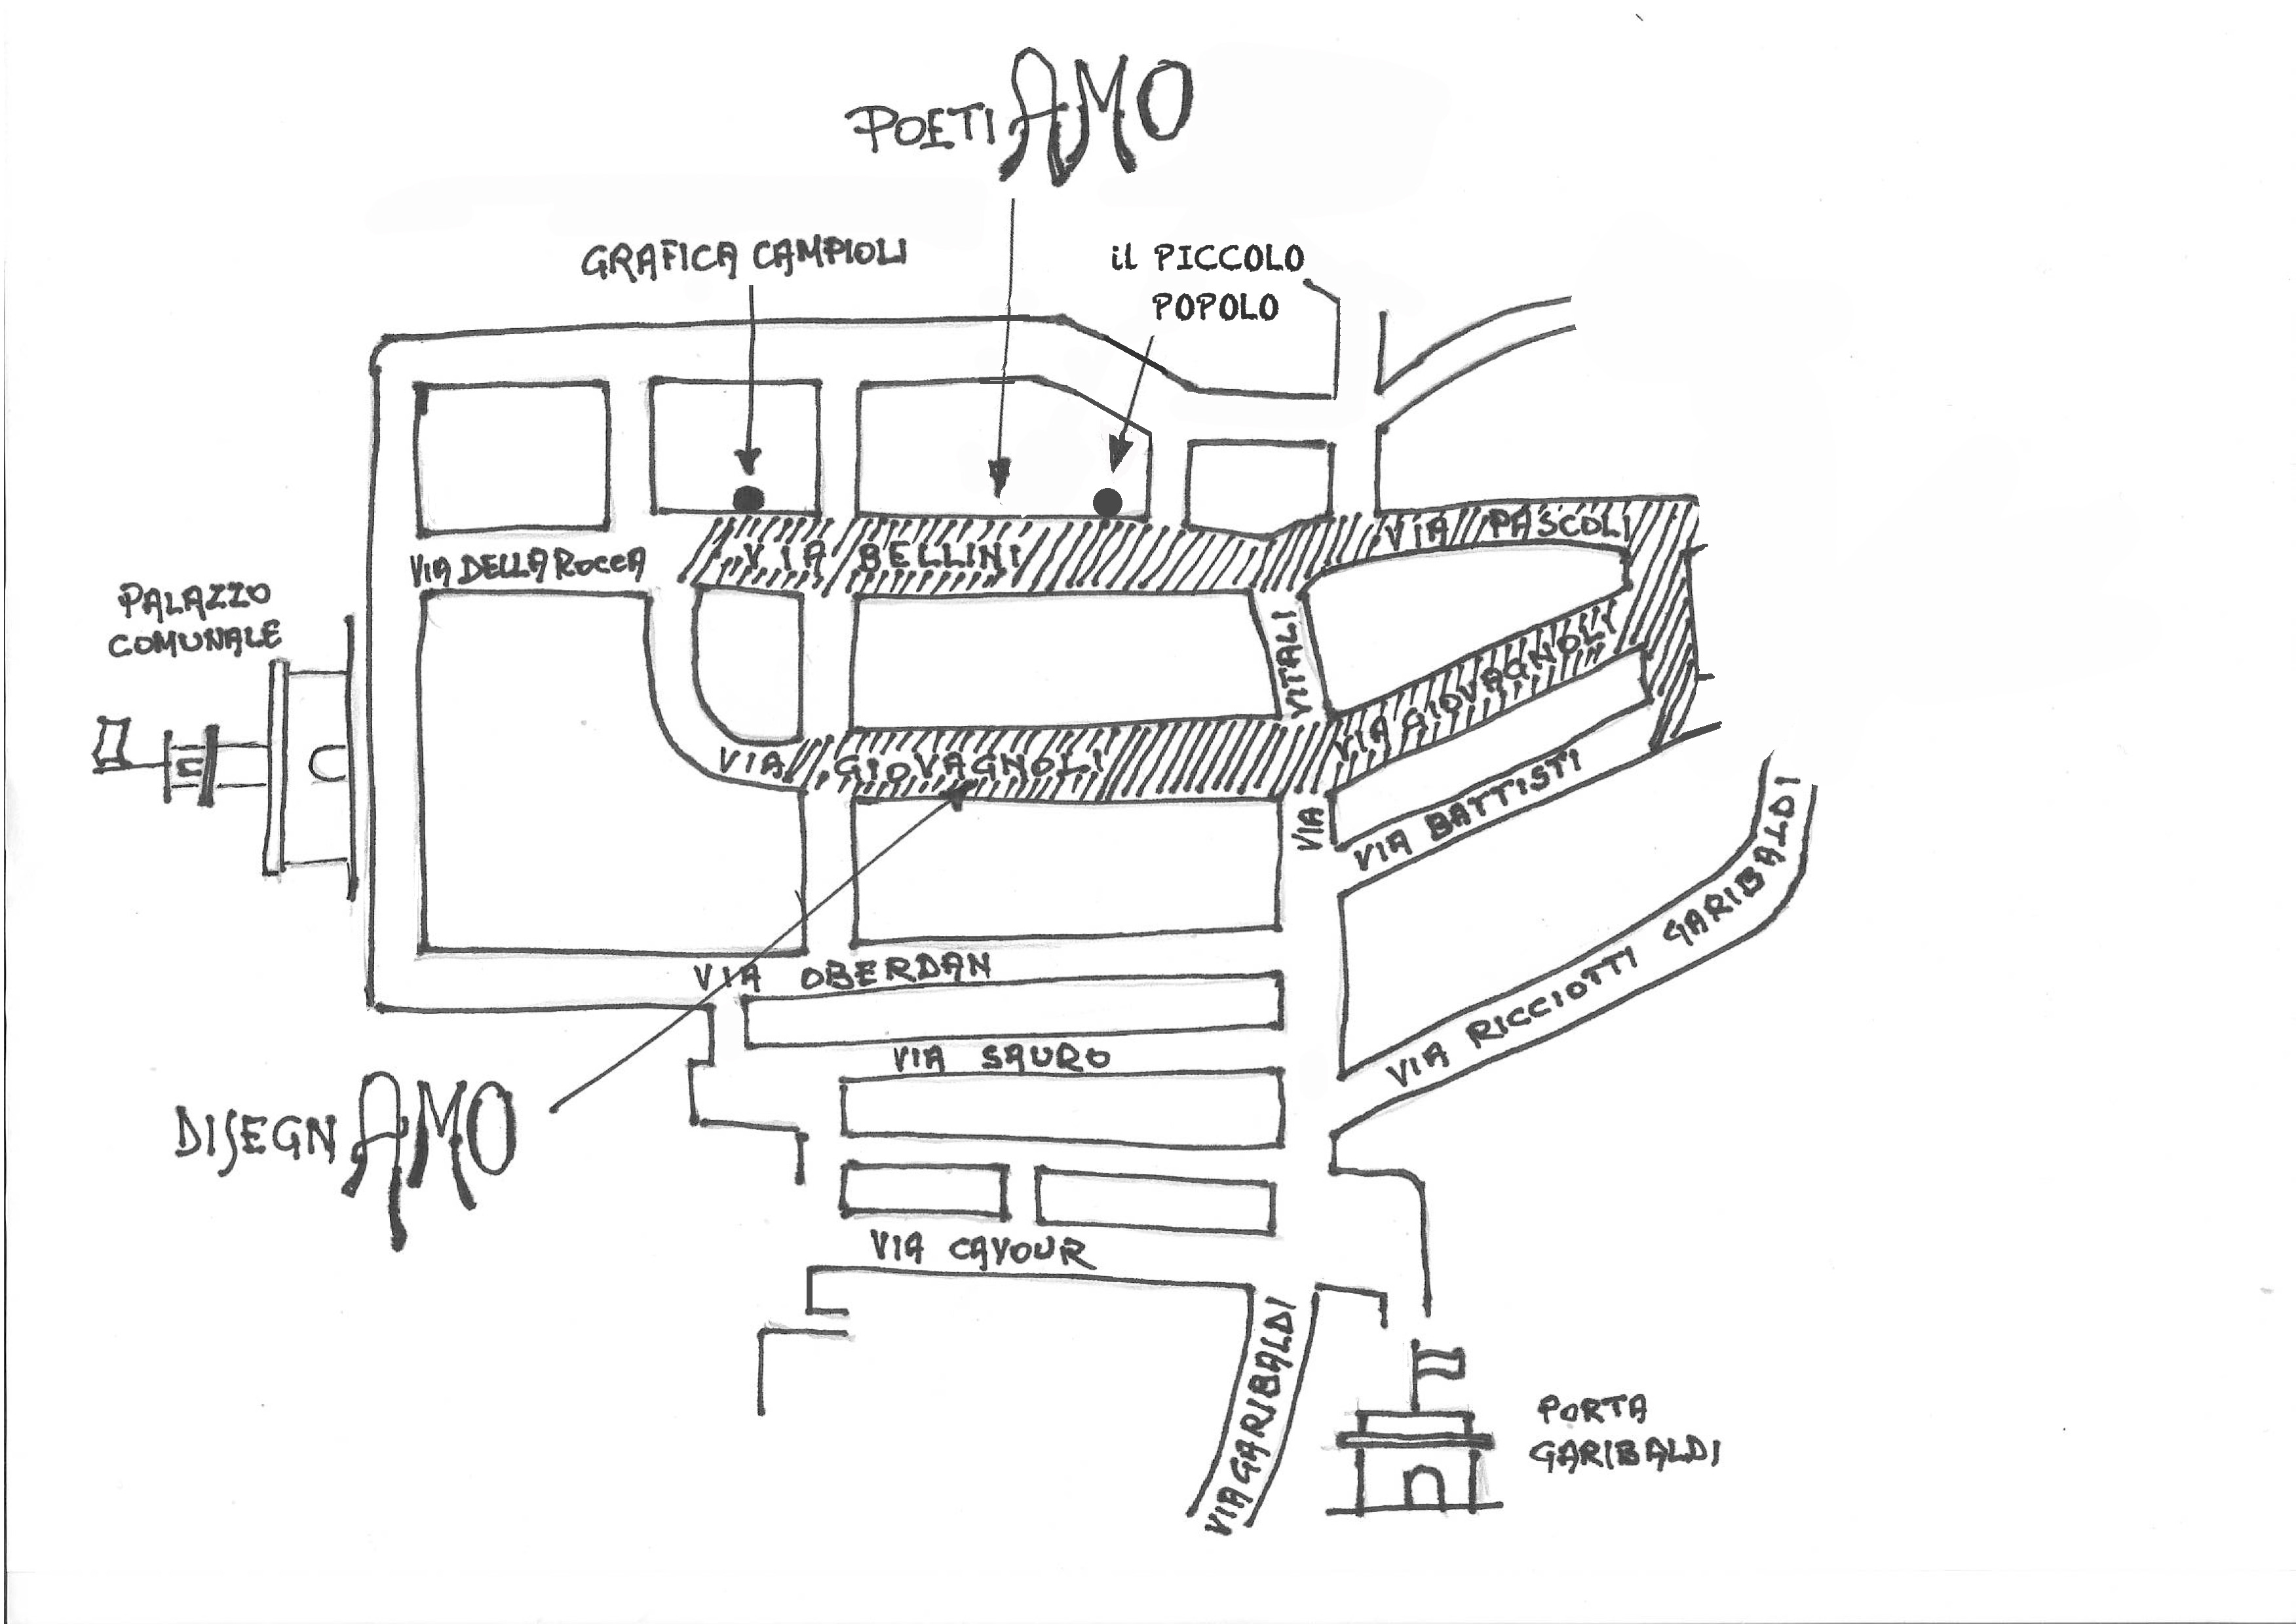 POETIAMO
GRAFICA CAMPIOLI
il PICCOLO
POPOLO
VIA PASCOLI
VIA BELLINI
VIA DELLA ROCCA
PALAZZO
COMUNALE
VITALI
VIA GIOVAGNOLI
VIA GIOVAGNOLI
VIA
VIA BATTISTI
VIA RICCIOTTI GARIBALDI
VIA OBERDAN
VIA SAURO
DISEGNAMO
VIA CAVOUR
VIA GARIBALDI
PORTA
GARIBALDI